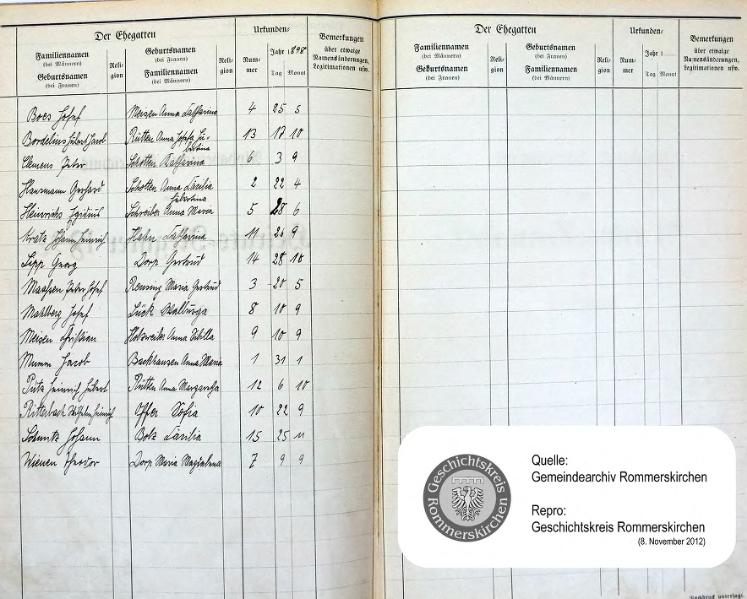 Der Ehegatten
Urkunden-
Bemerkungen
über etwaige
Namensänderungen,
Legitimationen usw.
Familiennamen
(bei Männern)
Geburtsnamen
(bei Frauen)
Reli-
gion
Geburtsnamen
(bei Frauen)
Familiennamen
(bei Männern)
Reli-
gion
Num-
mer
Jahr 1898
Tag Monat
Boes Josef Meisen Anna Catharina 4 25 5
Bordelius Hubert Jacob Rütten Anna Josefa Hu-
bertina 13 17 10
Clemens Peter Schotten Katharina 6 3 9
Hansmann Gerhard Schotten Anna Cäcilia
Hubertina 2 22 4
Heinrichs Schreiber Anna Maria 5 28 6
Kratz Johann Heinrich Hahn Catharina 11 26 9
Lipp Georg Dorp Gertrud 14 28 10
Maassen Peter Josef Renning Maria Gertrud 3 20 5
Mahlberg Josef Lück Walburga 8 10 9
Meisen Christian Anna Sibilla 9 10 9
Mumm Jacob Backhausen Anna Maria 1 31 1
Putz Heinrich Hubert Rütten Anna Margaretha 12 6 10
Ritterbach Wilhelm Heinrich Offer Sofia 10 22 9
Schmitz Johann Bolz Cäcilia 15 25 11
Wienen Theodor Dorp Maria Magdalena 7 9 9
Der Ehegatten
Urkunden-
Bemerkungen
über etwaige
Namensänderungen,
Legitimationen usw.
Familiennamen
(bei Männern)
Geburtsnamen
(bei Frauen)
Reli-
gion
Geburtsnamen
(bei Frauen)
Familiennamen
(bei Männern)
Reli-
gion
Num-
mer
Jahr 1
Tag Monat
Geschichtskreis
Rommerskirchen
Quelle:
Gemeindearchiv Rommerskirchen
Repro:
Geschichtskreis Rommerskirchen
(8. November 2012)
Nachdruck untersagt.